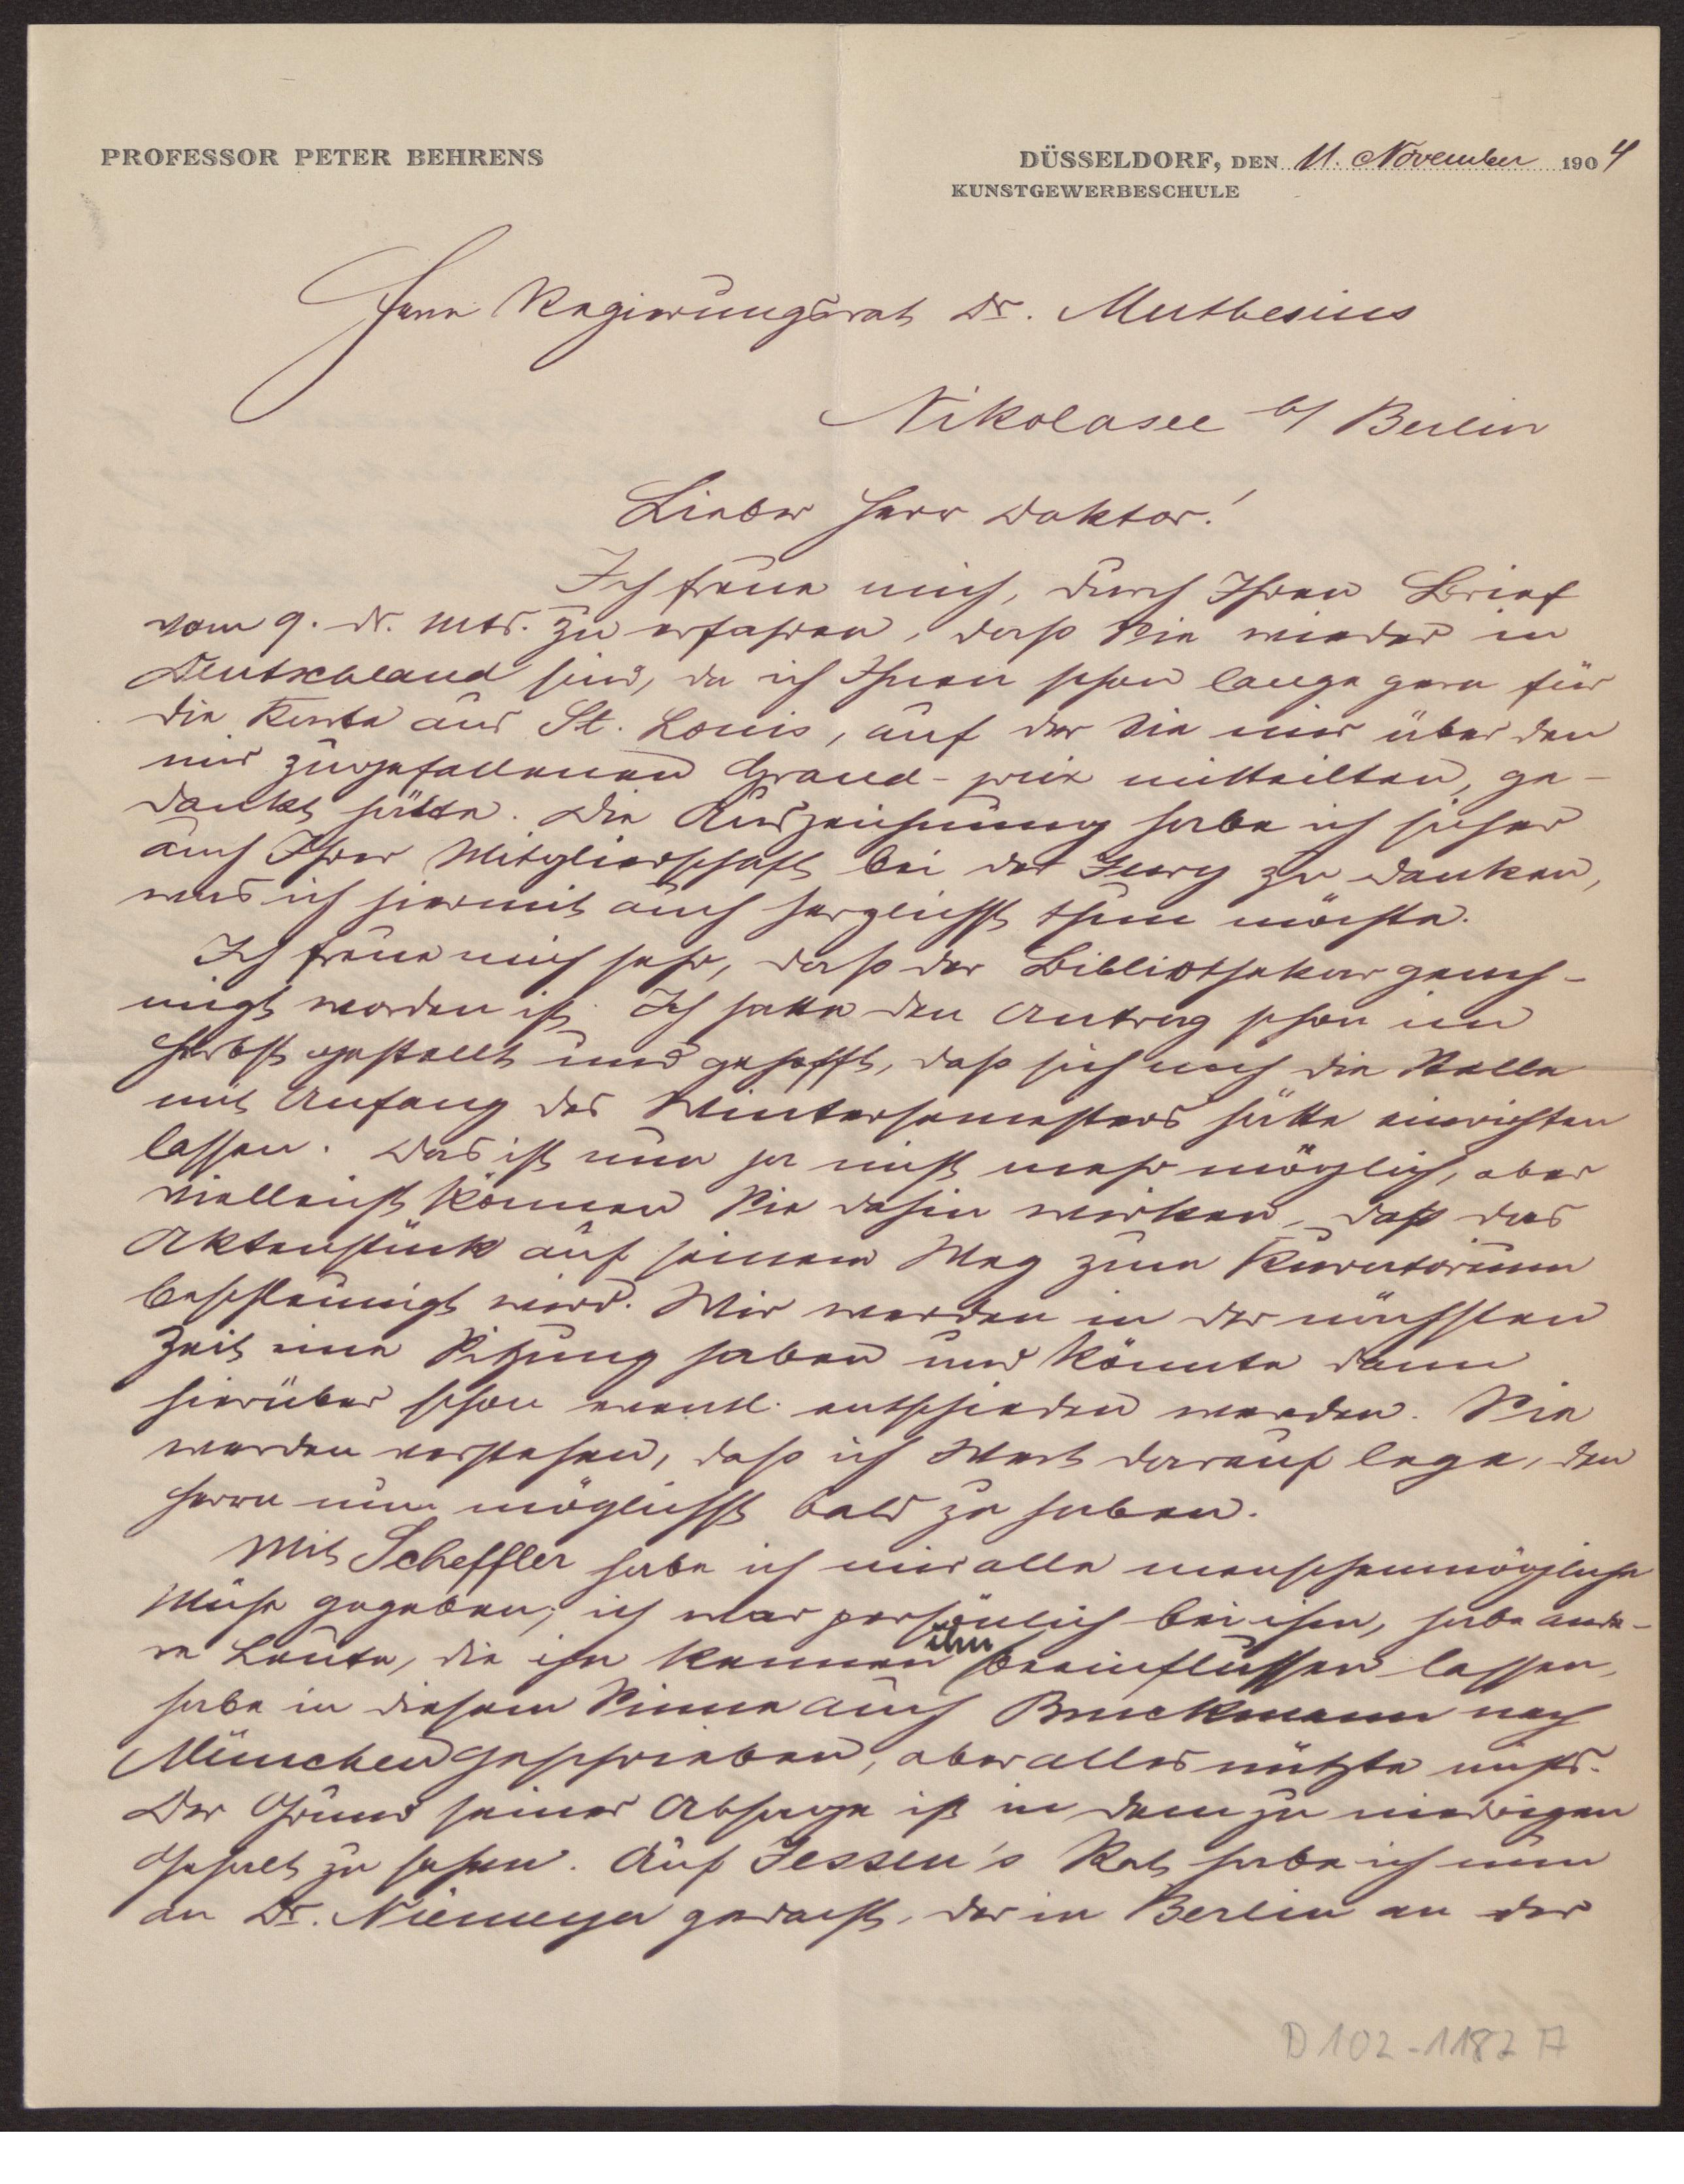 PROFESSOR PETER BEHRENS
DÜSSELDORF, DEN 11. November 1904
KUNSTGEWERBESCHULE
Herrn Regierungsrat Dr. Muthesius
Nikolasee b/ Berlin
Lieber Herr Doktor!
Ich freue mich, durch Ihren Brief
vom 9. ds. Mts. zu erfahren, dass Sie wieder in
Deutschland sind, da ich Ihnen schon lange gern für
die Karte aus St. Louis, auf der Sie mir über den
mir zugefallenen Grand-prix mitteilten, ge-
dankt hätte. Die Auszeichnung habe ich sicher
auch Ihrer Mitgliedschaft bei der Jury zu danken,
was ich hiermit auch herzlichst thun möchte.
Ich freue mich sehr, dass der Bibliothekar geneh-
migt worden ist. Ich hatte den Antrag schon im
Herbst gestellt und gehofft, dass sich noch die Stelle
mit Anfang des Wintersemesters hätte einrichten
lassen. Das ist nun ja nicht mehr möglich, aber
vielleicht können Sie dahin wirken, dass das
Aktenstück auf seinem Weg zum Kuratorium
beschleunigt wird. Wir werden in der nächsten
Zeit eine Sitzung haben und könnte dann
hierüber schon eventl. entschieden werden. Sie
werden verstehen, dass ich Wert darauf lege, den
Herrn nun möglichst bald zu haben.
Mit Scheffler habe ich mir alle menschenmögliche
Mühe gegeben; ich war persönlich bei ihm, habe ande-
re Leute, die ihn kennen ihn beeinflussen lassen,
habe in diesem Sinne auch Bruckmann nach
München geschrieben, aber alles nützte nichts.
Der Grund seiner Absage ist in dem zu niedrigen
Gehalt zu sehen. Auf Jessen's Rat habe ich nun
an Dr. Niemeyer gedacht, der in Berlin an der
D 102-1182 A